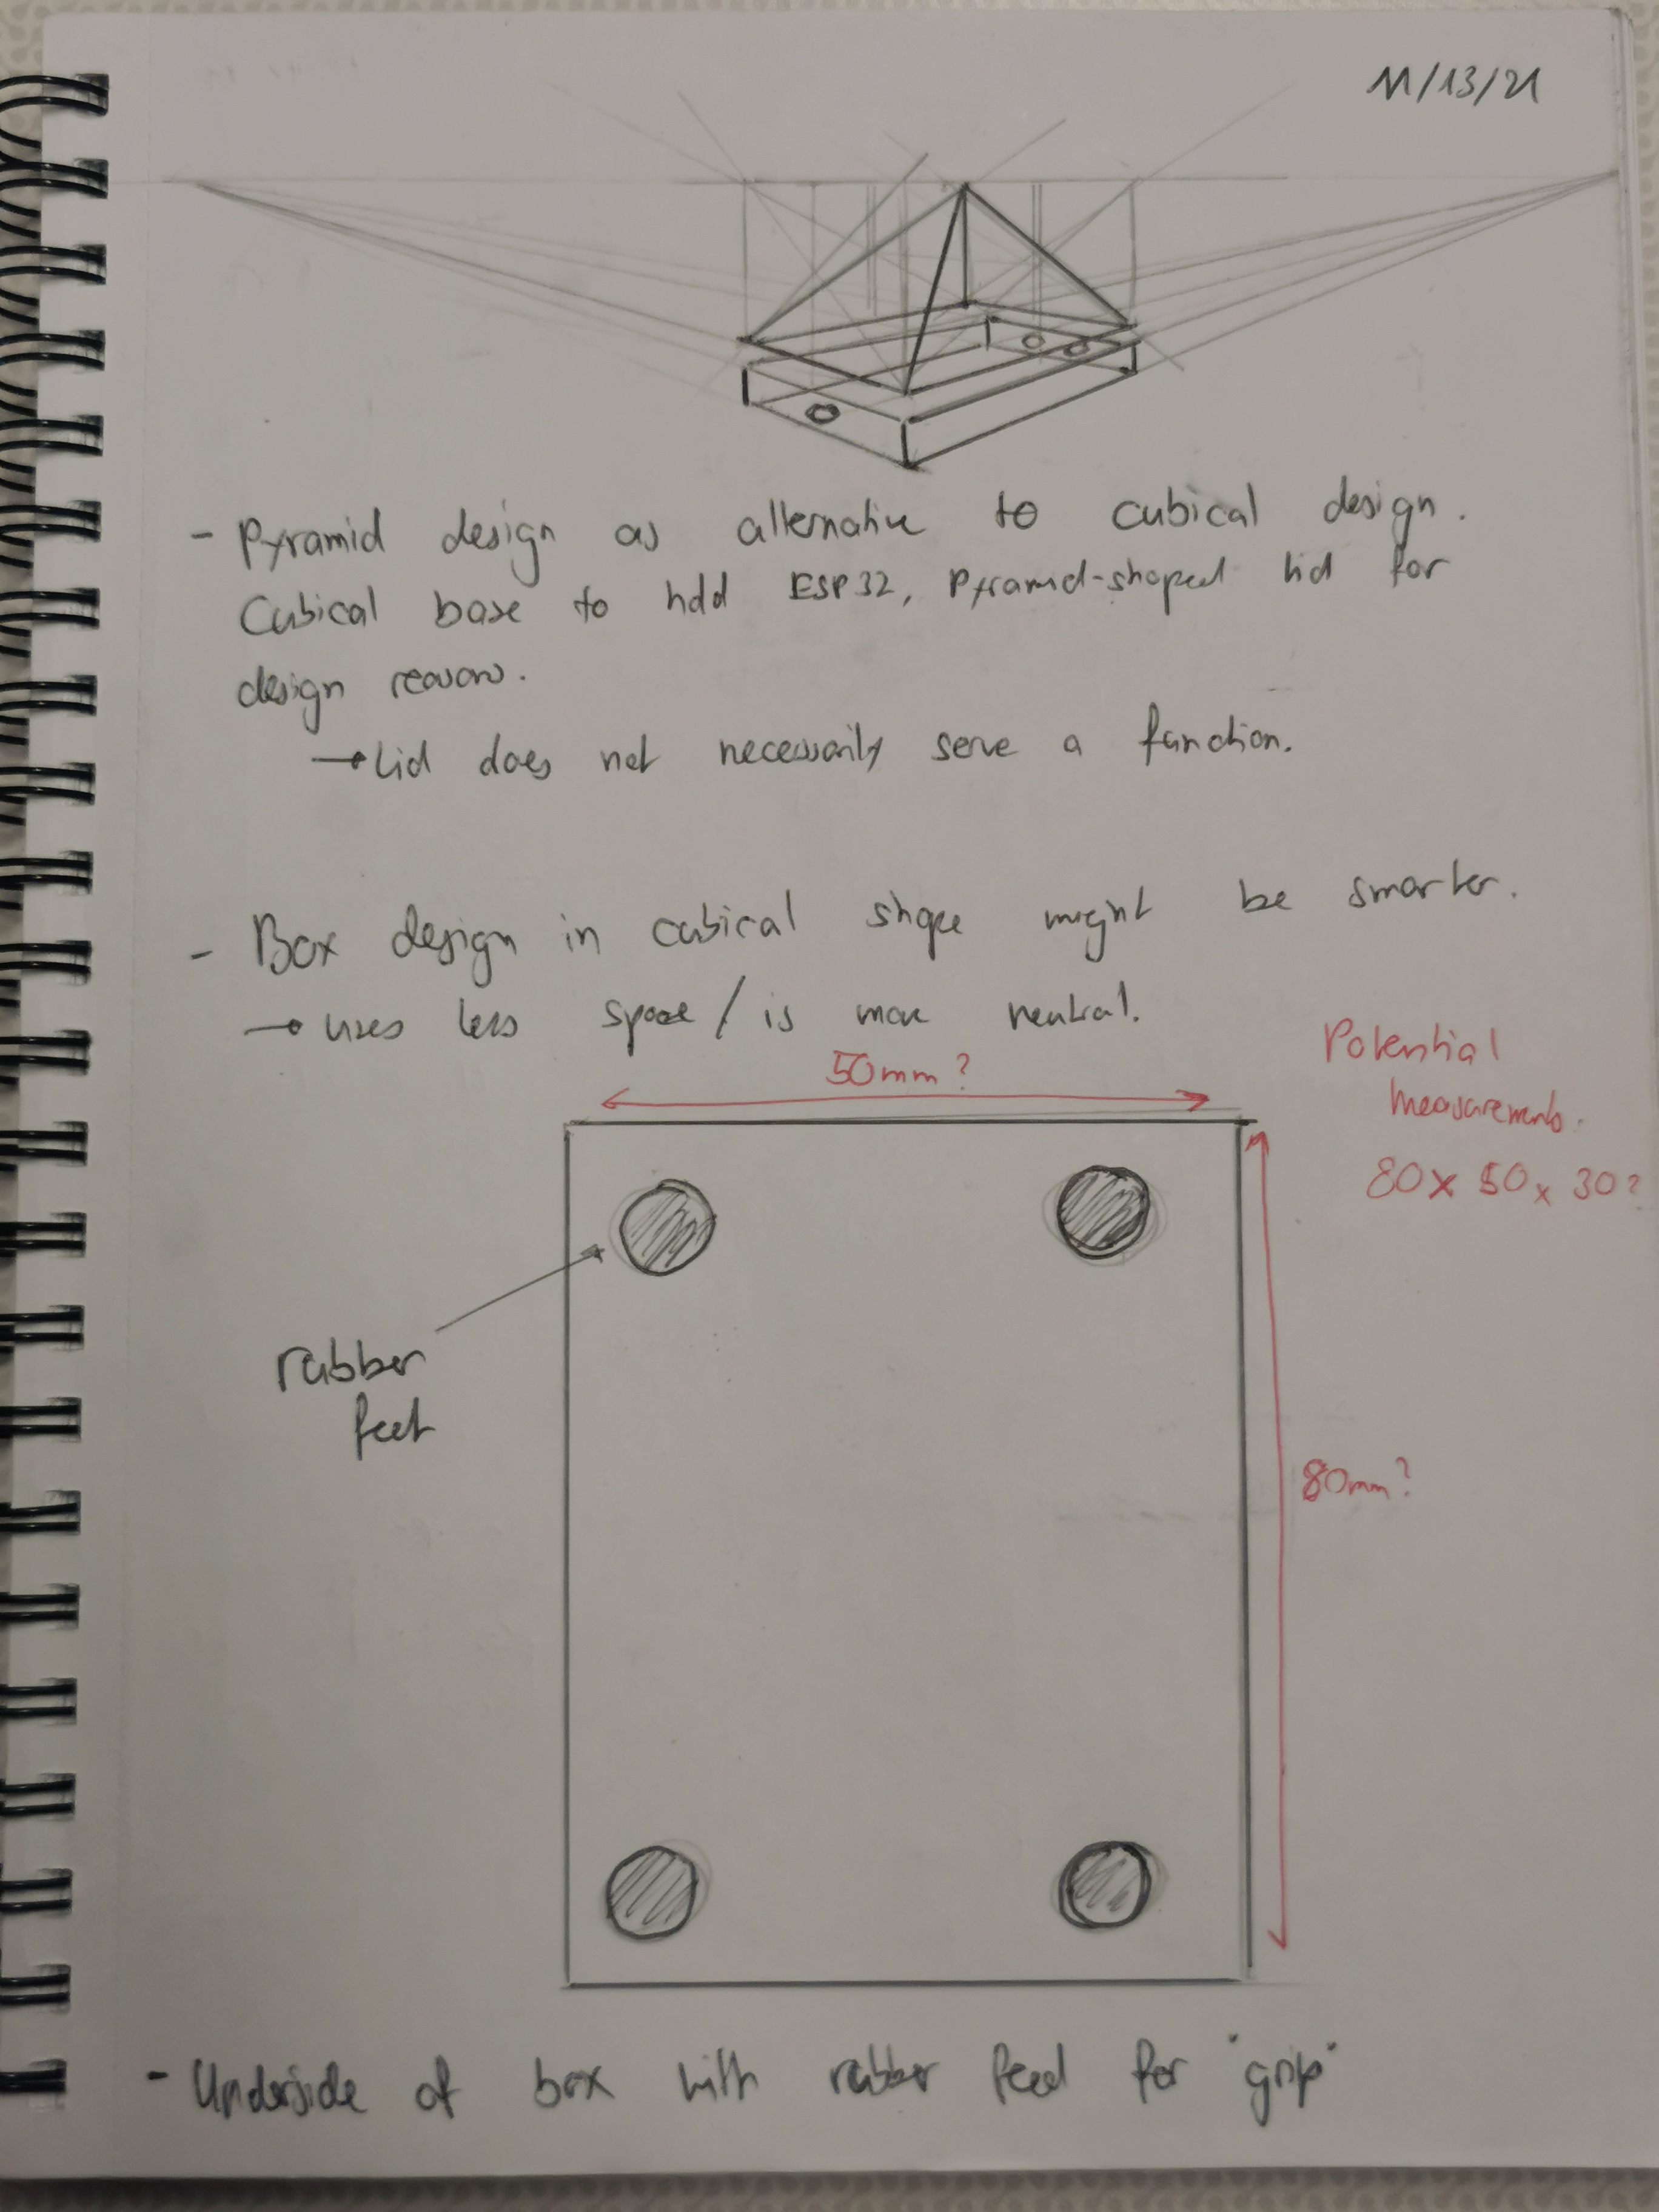 11/13/21
- Pyramid design as alternative to cubical design.
Cubical base to hold ESP32, Pyramid-shaped lid for
design reasons.
→ Lid does not necessarily serve a function.
- Box design in cubical shape might be smarter.
→ uses less space / is more neutral.
50mm?
Potential
measurements:
80 x 50 x 30?
rubber
feet
80mm?
- Underside of box with rubber feed for "grip"